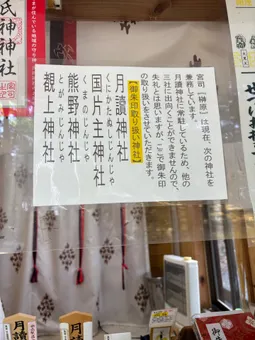 宮司(榊原)は現在、次の神社を
兼務しています。
月讀神社に常駐しているため、他の
三社に出向くことができませんので、
失礼とは思いますが、ここで御朱印
の取り扱いをさせていただきます。
【御朱印取り扱い神社】
月讀神社
くにかたぬしじんじゃ
国片主神社
くまのじんじゃ
熊野神社
とがみじんじゃ
覩上神社
氏神神社
月讀
月讀
御朱